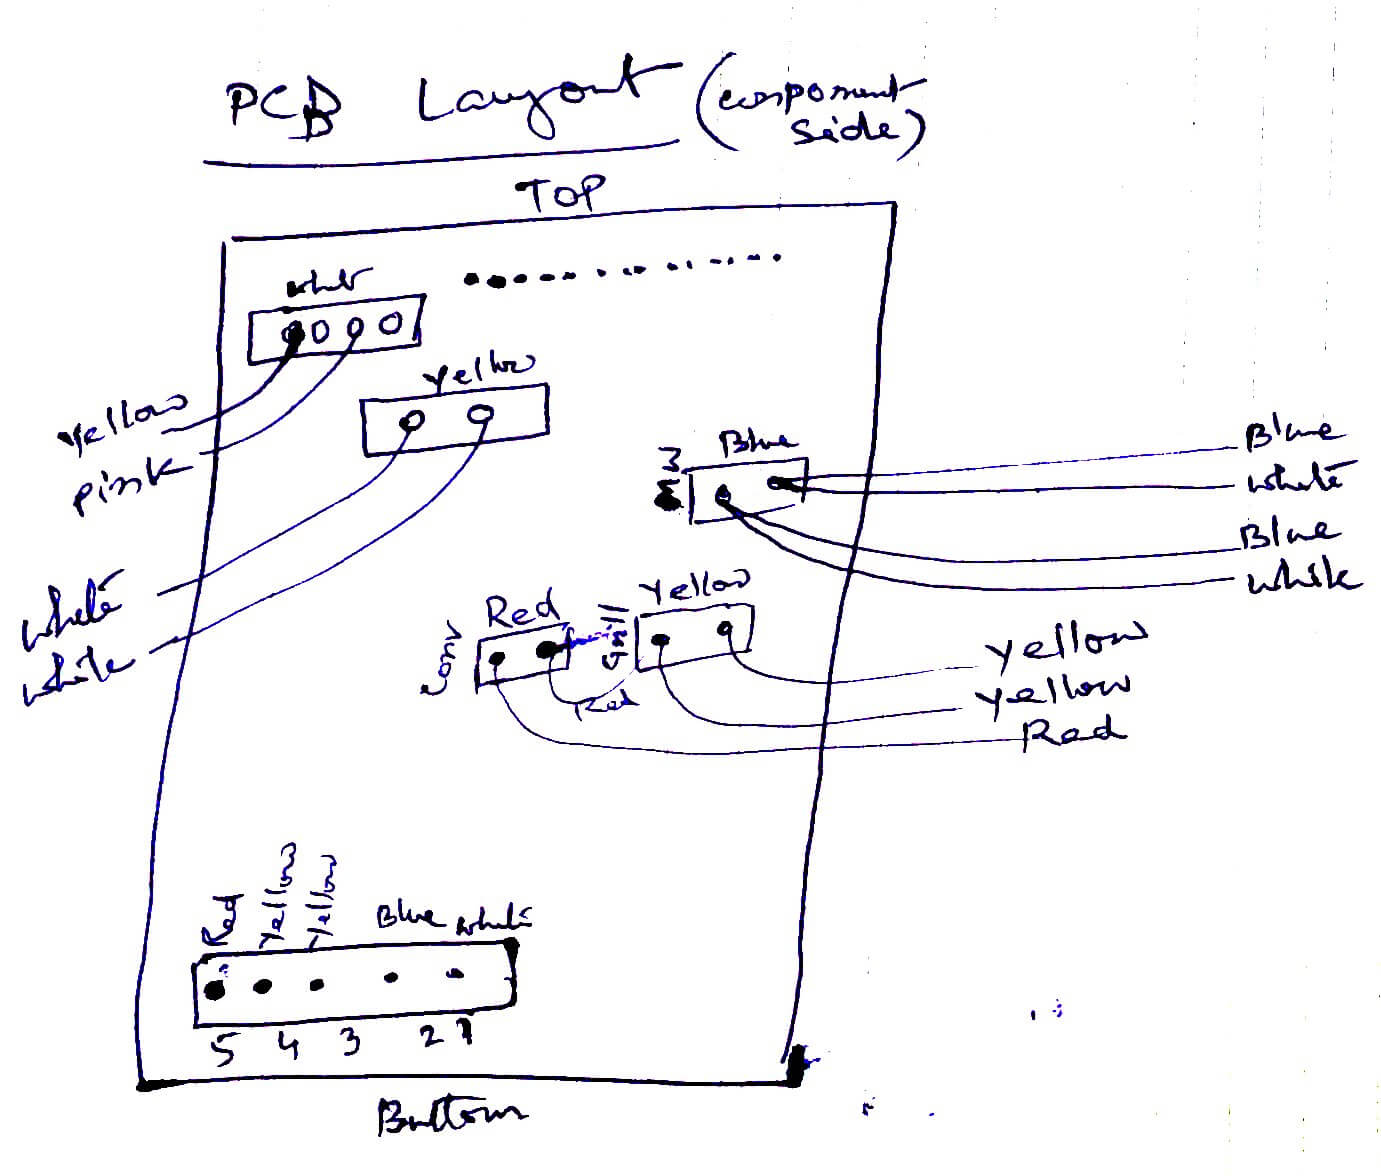 PCB Layout (component
side)
TOP
white
Yellow
Yellow
pink
Blue
Blue
white
Blue
white
white
white
Red
Yellow
conv
Grill
Red
Yellow
Yellow
Red
Red
Yellow
Yellow
Blue white
5 4 3 2 1
Buttom